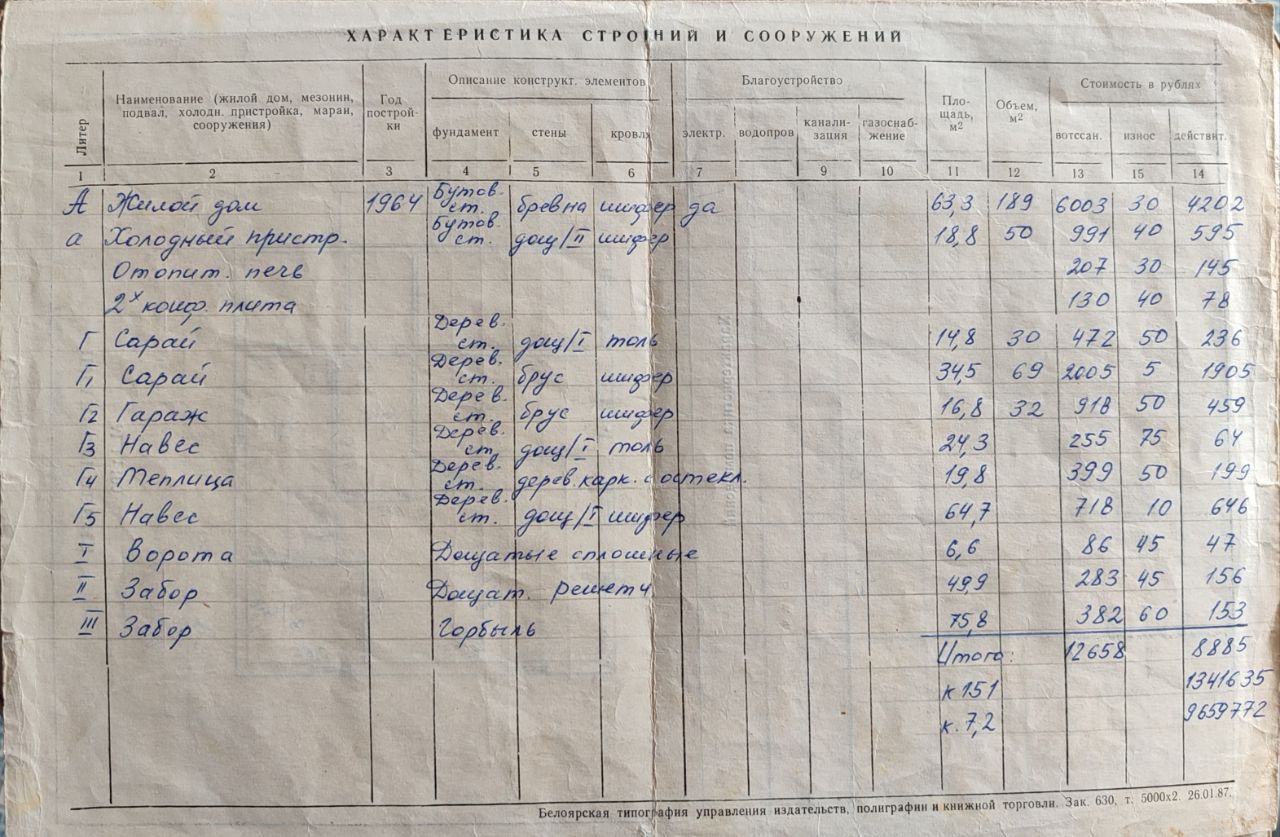 ХАРАКТЕРИСТИКА СТРОЕНИЙ И СООРУЖЕНИЙ
Литер
Наименование (жилой дом, мезонин, подвал, холодн. пристройка, мараи, сооружения)
Год построй-ки
Описание конструкт. элементов
фундамент стены кровля
Благоустройство
электр. водопров канали-зация газоснаб-жение
Пло-щадь, м2
Объем, м2
Стоимость в рублях
вотссан. износ действит.
1 2 3 4 5 6 7 9 10 11 12 13 15 14
А Жилой дом 1964 Бутов. ст. бревна шифер да 63,3 189 6003 30 4202
а Холодный пристр. Бутов. ст. дощ/II шифер 18,8 50 991 40 595
Отопит. печь 207 30 145
2х конф. плита 130 40 78
Г Сарай Дерев. ст. дощ/I толь 14,8 30 472 50 236
Г1 Сарай Дерев. ст. брус шифер 34,5 69 2005 5 1905
Г2 Гараж Дерев. ст. брус шифер 16,8 32 918 50 459
Г3 Навес Дерев. ст. дощ/I толь 24,3 255 75 64
Г4 Теплица Дерев. ст. дерев. карк. с остекл. 19,8 399 50 199
Г5 Навес Дерев. ст. дощ/I шифер 64,7 718 10 646
I Ворота Дощатые сплошные 6,6 86 45 47
II Забор Дощат. решетч 49,9 283 45 156
III Забор Горбыль 75,8 382 60 153
Итого: 12658 8885
к 151 1341635
к. 7,2 9659772
Белоярская типография управления издательств, полиграфии и книжной торговли. Зак. 630, т. 5000х2. 26.01.87.